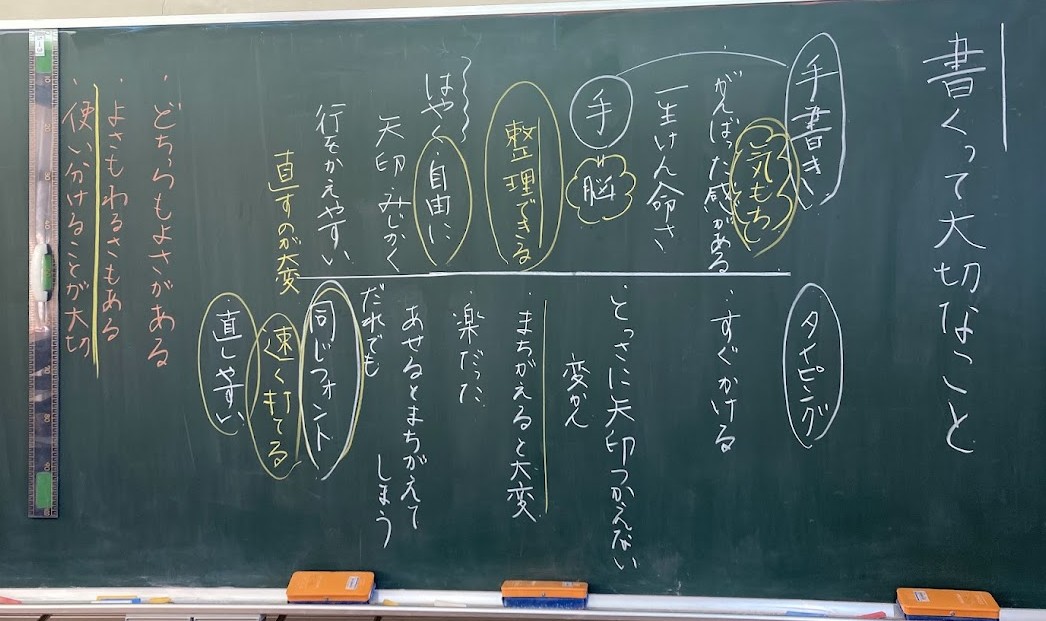 書くって大切なこと
手書き
気もち
・がんばった感がある
一生けん命さ
手
脳
整理できる
はやく・自由に
矢印・みじかく
行をかえやすい
直すのが大変
タイピング
・すぐかける
・とっさに矢印つかえない
変かん
・まちがえると大変
・楽だった
あせるとまちがえて
しまう
だれでも
同じフォント
・速く打てる
・直しやすい
・どちらもよさがある
・よさもわるさもある
・使い分けることが大切